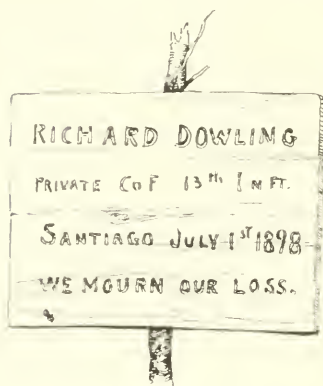 RICHARD DOWLING
PRIVATE CO F 13TH INFT.
SANTIAGO JULY 1ST 1898
WE MOURN OUR LOSS.